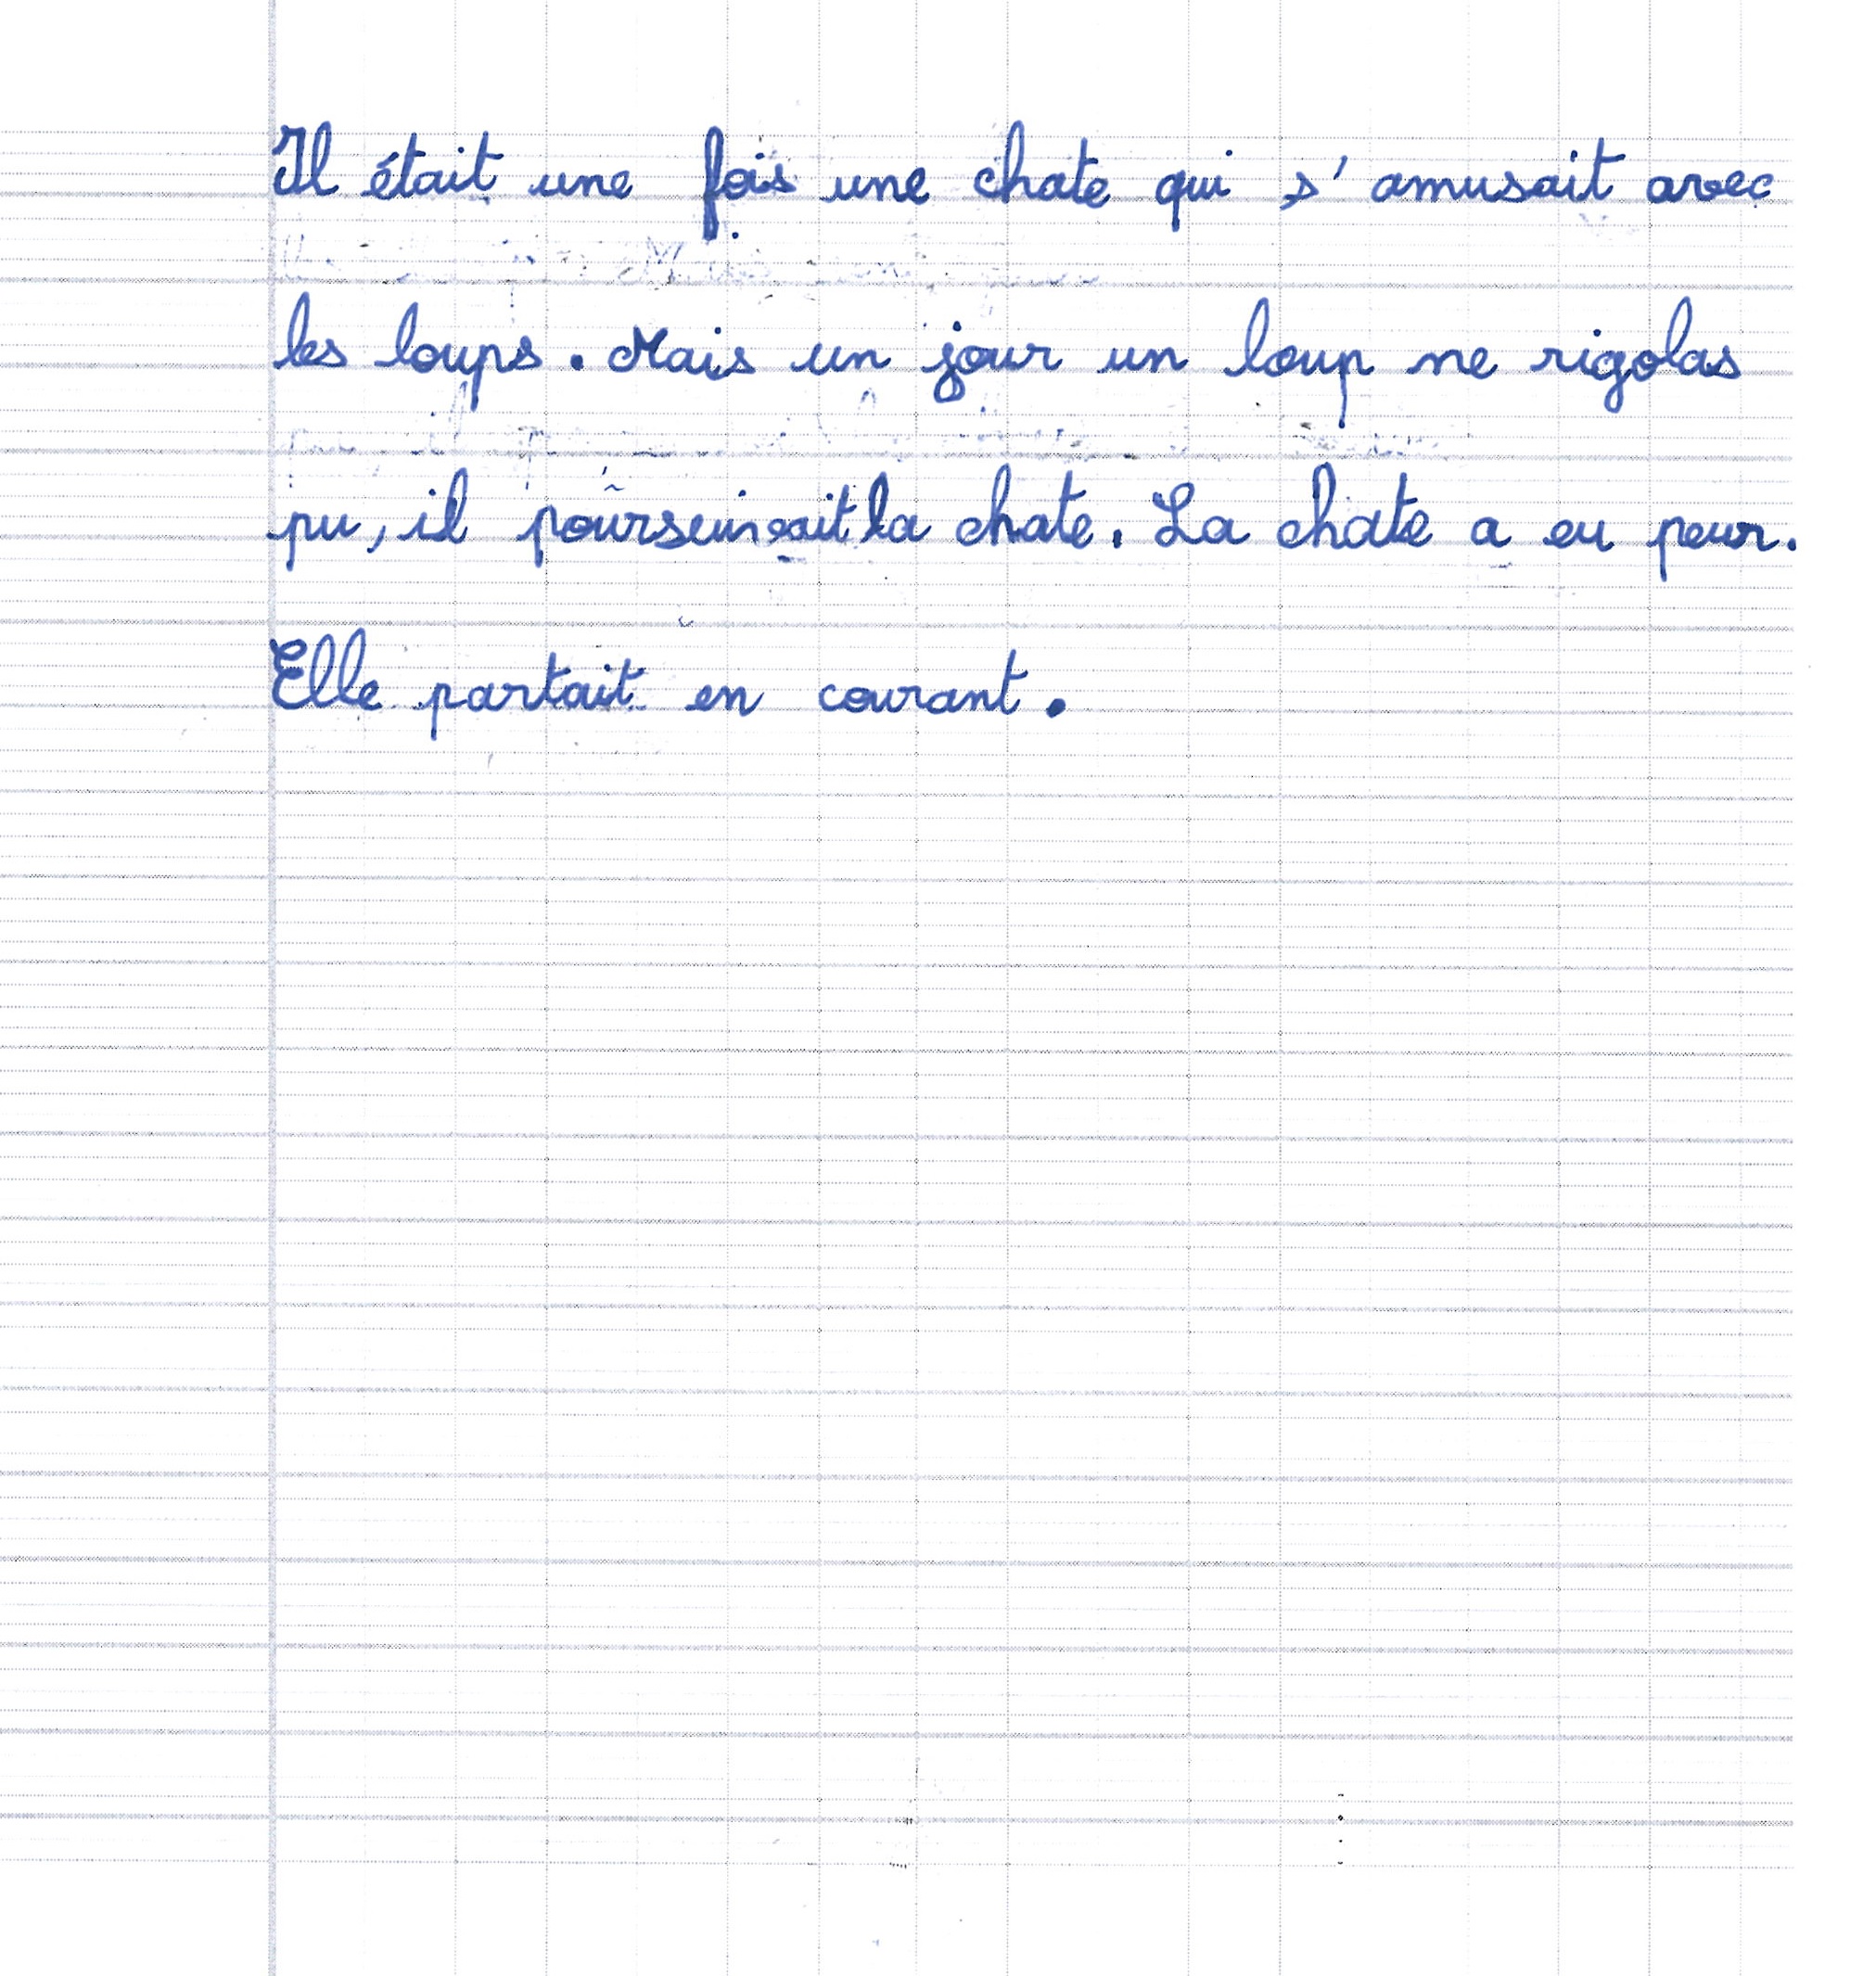 Il était une fois une chate qui s'amusait avec
les loups. Mais un jour un loup ne rigolas
pu, il la chate. La chate a eu peur.
Elle partait en courant.